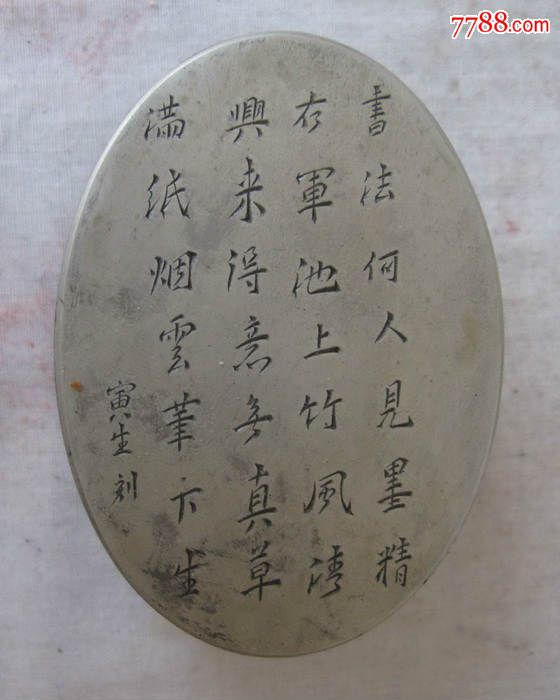 7788.com
書法何人見墨精
右軍池上竹風清
興来得意多真草
满紙烟雲筆下生
寅生刻